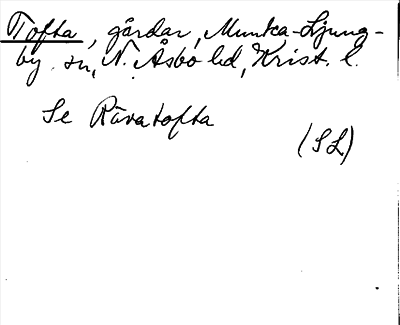 Tofta, gårdar, Munka-Ljung-
by sn, N. Åsbo hd, Krist. l.
Se Rävatofta
(SL)